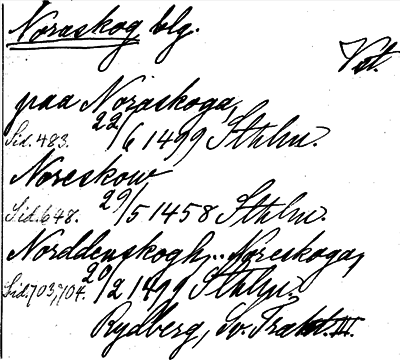 Noraskog blg.
Vst.
paa Noraskoga,
Sid. 483. 22/6 1499 Sthlm.
Noreskow
Sid. 648. 29/5 1458 Sthlm.
Norddenskogh, Noreskoga,
Sid. 703, 704. 20/2 1499 Sthlm.
Rydberg, Sv. Trakt. III.